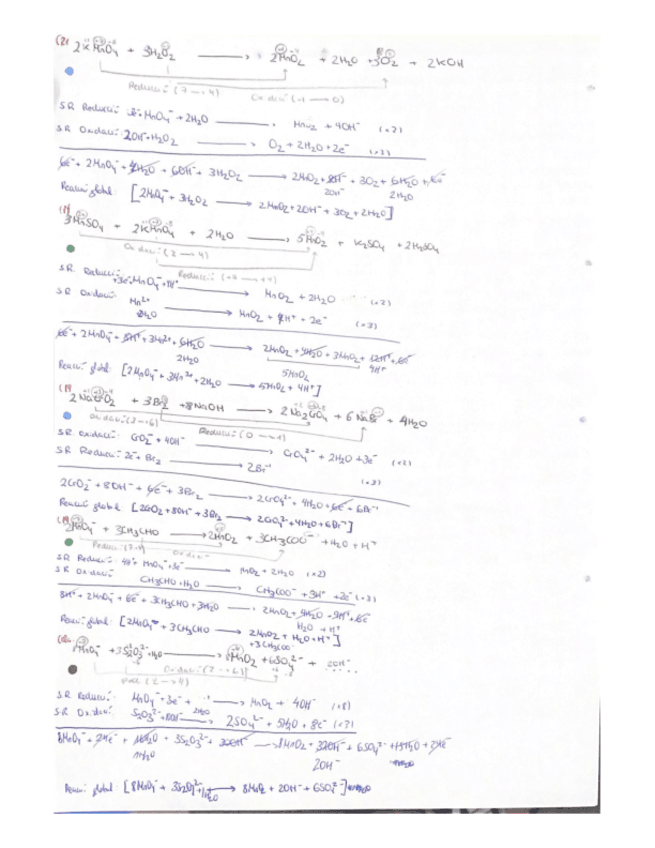 2KMnO₄ + 3H₂O₂ ⟶ 2MnO₂ + 2H₂O + 3O₂ + 2KOH
Reducció (7 → 4)
Oxidació (-1 → 0)
S.R. Reducció: 3e⁻ + MnO₄⁻ + 2H₂O ⟶ MnO₂ + 4OH⁻ (×2)
S.R. Oxidació: 2OH⁻ + H₂O₂ ⟶ O₂ + 2H₂O + 2e⁻ (×3)
6e⁻ + 2MnO₄⁻ + 4H₂O + 6OH⁻ + 3H₂O₂ ⟶ 2MnO₂ + 8OH⁻ + 3O₂ + 6H₂O + 6e⁻
2OH⁻ 2H₂O
Reacció global: [2MnO₄⁻ + 3H₂O₂ ⟶ 2MnO₂ + 2OH⁻ + 3O₂ + 2H₂O]
3MnSO₄ + 2KMnO₄ + 2H₂O ⟶ 5MnO₂ + K₂SO₄ + 2H₂SO₄
Oxidació: (2 → 4)
Reducció: (+7 → +4)
S.R. Reducció: +3e⁻ + MnO₄⁻ + 4H⁺ ⟶ MnO₂ + 2H₂O (×2)
S.R. Oxidació: Mn²⁺ 2H₂O ⟶ MnO₂ + 4H⁺ + 2e⁻ (×3)
6e⁻ + 2MnO₄⁻ + 8H⁺ + 3Mn²⁺ + 6H₂O ⟶ 2MnO₂ + 4H₂O + 3MnO₂ + 12H⁺ + 6e⁻
2H₂O 5MnO₂ 4H⁺
Reacció global: [2MnO₄⁻ + 3Mn²⁺ + 2H₂O ⟶ 5MnO₂ + 4H⁺]
2NaCrO₂ + 3Br₂ + 8NaOH ⟶ 2Na₂CrO₄ + 6NaBr + 4H₂O
Oxidació: (3 → 6)
Reducció: (0 → -1)
S.R. Oxidació: CrO₂⁻ + 4OH⁻ ⟶ CrO₄²⁻ + 2H₂O + 3e⁻ (×2)
S.R. Reducció: 2e⁻ + Br₂ ⟶ 2Br⁻¹ (×3)
2CrO₂⁻ + 8OH⁻ + 6e⁻ + 3Br₂ ⟶ 2CrO₄²⁻ + 4H₂O + 6e⁻ + 6Br⁻¹
Reacció global: [2CrO₂ + 8OH⁻ + 3Br₂ ⟶ 2CrO₄²⁻ + 4H₂O + 6Br⁻¹]
2MnO₄⁻ + 3CH₃CHO ⟶ 2MnO₂ + 3CH₃COO⁻ + H₂O + H⁺
S.R. Reducció: 4H⁺ + MnO₄⁻ + 3e⁻ ⟶ MnO₂ + 2H₂O (×2)
S.R. Oxidació: CH₃CHO + H₂O ⟶ CH₃COO⁻ + 3H⁺ + 2e⁻ (×3)
8H⁺ + 2MnO₄⁻ + 6e⁻ + 3CH₃CHO + 3H₂O ⟶ 2MnO₂ + 4H₂O + 9H⁺ + 6e⁻
H₂O + H⁺
Reacció global: [2MnO₄⁻ + 3CH₃CHO ⟶ 2MnO₂ + H₂O + H⁺]
+ 3CH₃COO⁻
8MnO₄⁻ + 3S₂O₃²⁻ + H₂O ⟶ 8MnO₂ + 6SO₄²⁻ + 2OH⁻
Oxidació: (2 → 6)
S.R. Reducció: MnO₄⁻ + 3e⁻ ⟶ MnO₂ + 4OH⁻ (×8)
S.R. Oxidació: S₂O₃²⁻ + 10OH⁻ ⟶ 2SO₄²⁻ + 5H₂O + 8e⁻ (×3)
8MnO₄⁻ + 24e⁻ + 16H₂O + 3S₂O₃²⁻ + 30OH⁻ ⟶ 8MnO₂ + 32OH⁻ + 6SO₄²⁻ + 15H₂O + 24e⁻
1H₂O 2OH⁻
Reacció global: [8MnO₄⁻ + 3S₂O₃²⁻ + 1H₂O ⟶ 8MnO₂ + 2OH⁻ + 6SO₄²⁻]